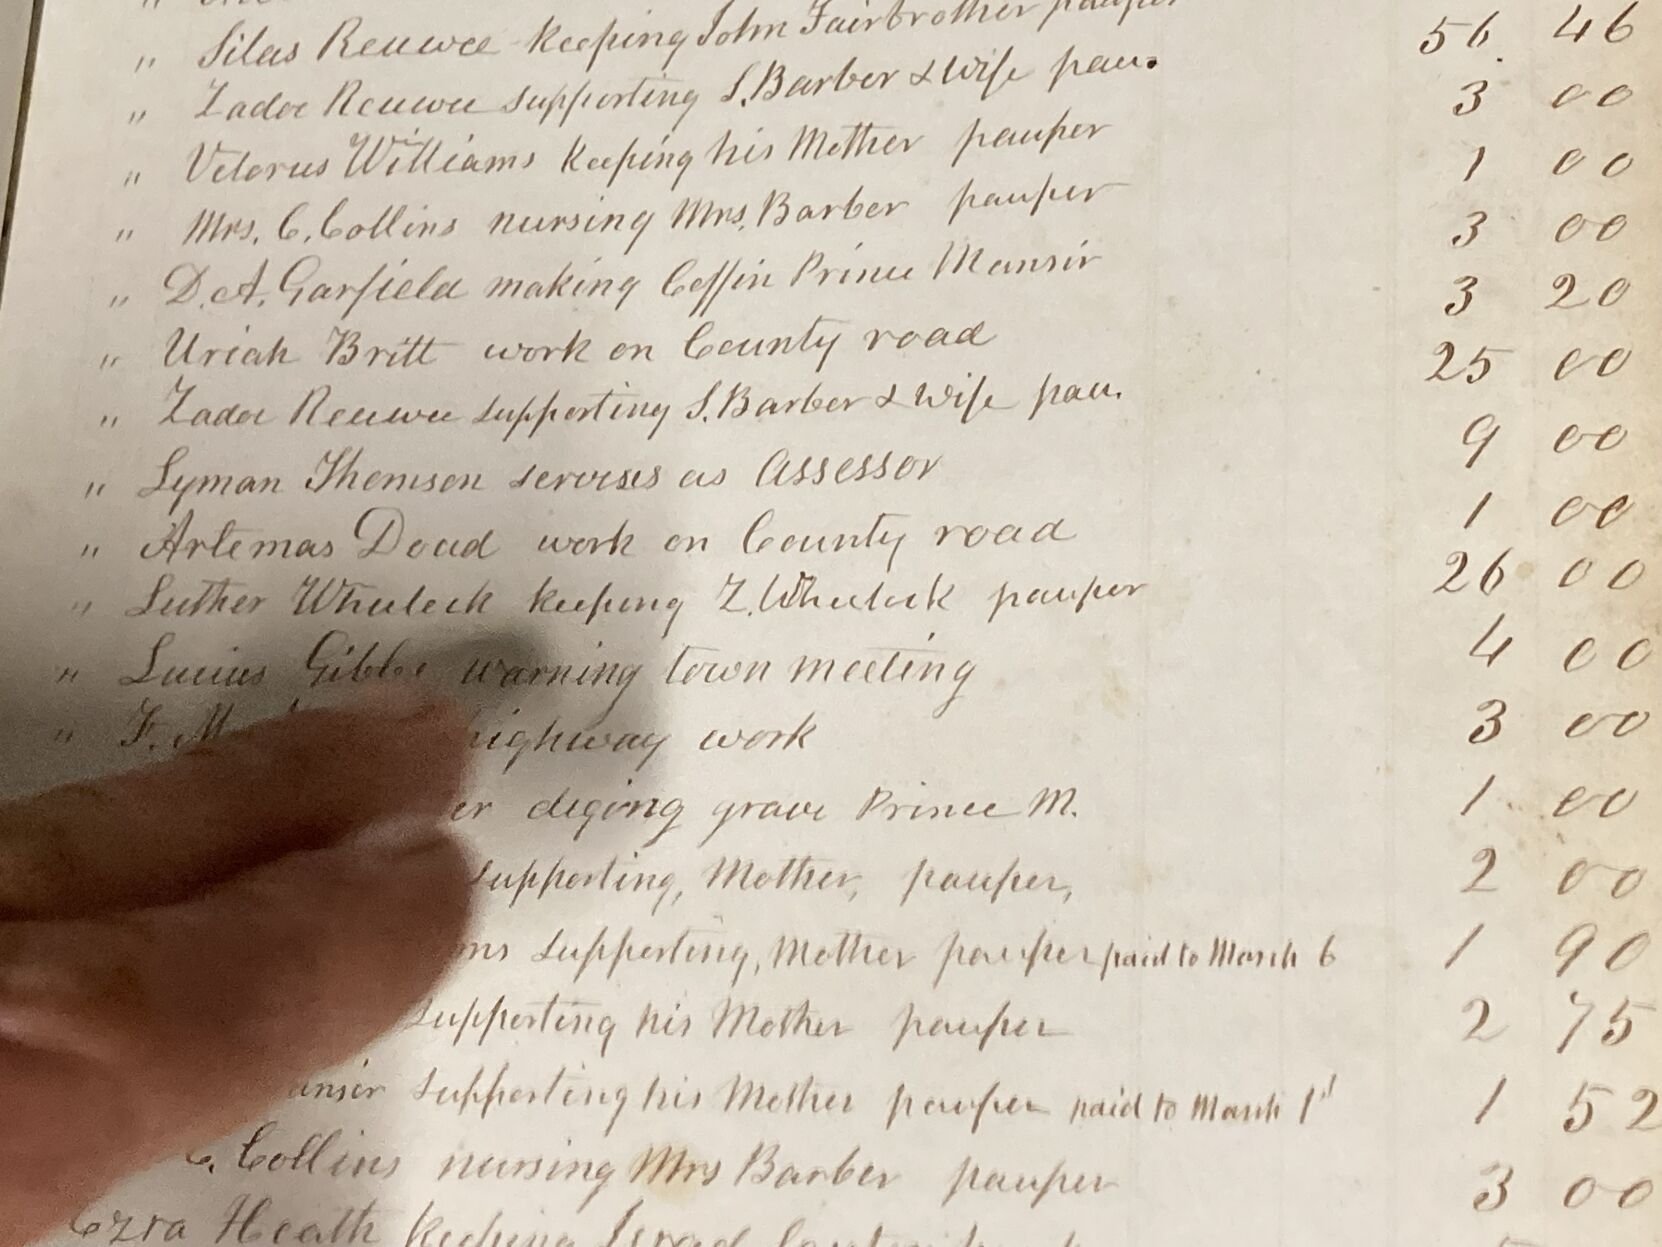 " Silas Reuwee keeping John Fairbrother pauper 56 46
" Zadoc Reuwee supporting S. Barber & Wife pau. 3 00
" Velorus Williams keeping his Mother pauper 1 00
" Mrs. C. Collins nursing Mrs. Barber pauper 3 00
" D. A. Garfield making Coffin Prince Mansir 3 20
" Uriah Britt work on County road 25 00
" Zadoc Reuwee supporting S. Barber & Wife pau. 9 00
" Lyman Thomson servises as Assessor 1 00
" Artemas Doud work on County road 26 00
" Luther Wheelock keeping Z. Wheelock pauper 4 00
" Lucius Gibbs warning town meeting 3 00
" F. M highway work 1 00
er diging grave Prince M. 2 00
supporting, Mother, pauper, 1 90
ms supporting, Mother pauper paid to March 6 2 75
supporting his Mother pauper 1 52
ansir supporting his Mother pauper paid to March 1st 3 00
C. Collins nursing Mrs Barber pauper
Ezra Heath keeping Israel